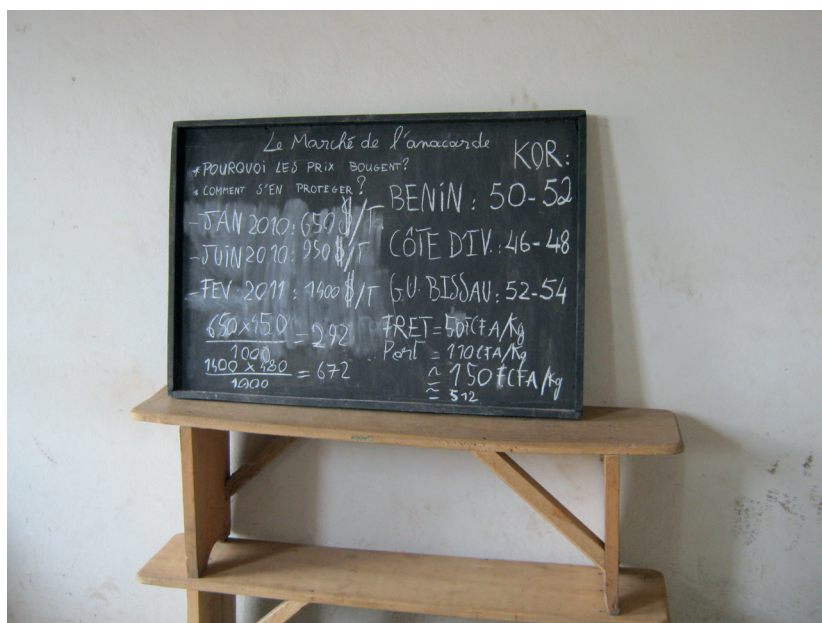 Le Marché de l'anacarde
* POURQUOI LES PRIX BOUGENT?
* COMMENT S'EN PROTEGER?
- JAN 2010: 650 $/T
- JUIN 2010: 950 $/T
- FEV 2011: 1400 $/T
650 x 450 / 1000 = 292
1400 x 480 / 1000 = 672
KOR:
BENIN: 50-52
CÔTE D'IV.: 46-48
GU. BISSAU: 52-54
FRET = 50 FCFA/Kg
Port = 110 CFA/Kg
≈ 150 FCFA/Kg
= 512